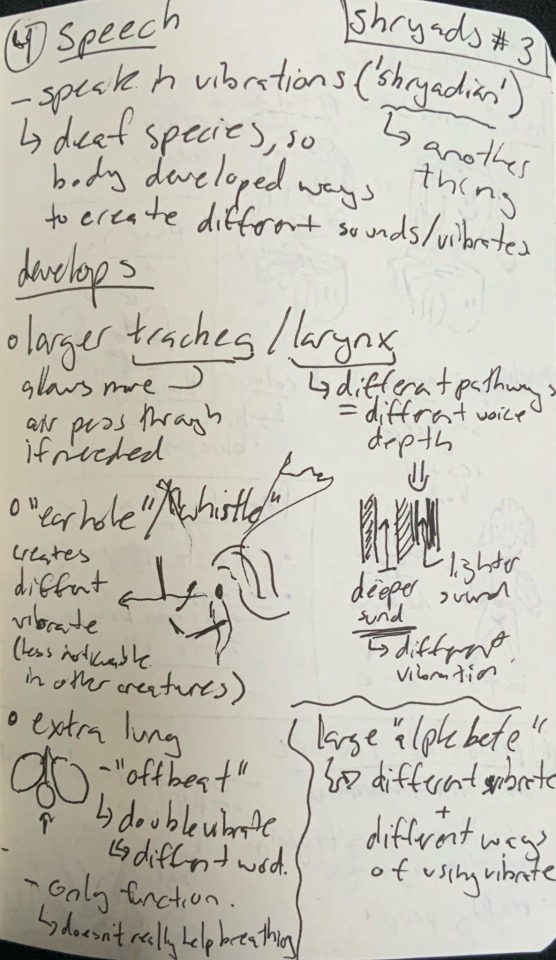 4 Speech
shryads #3
- speak in vibrations ('shryadian')
↳ another
thing
↳ deaf species, so
body developed ways
to create different sounds/vibrates
develops
o larger trachea / larynx
allows more
air pass through
if needed
↳ different pathways
= different voice
depth
⇓
deeper
sund
lighter
sound
↳ different
vibration
o "earhole"/"whistle"
creates
diffent
vibrate
(less noticeable
in other creatures)
o extra lung
- "offbeat"
↳ double vibrate
↳ diffent word.
- only function.
↳ doesn't really help breathing
large "alphabete"
↳ different vibrate
+
different ways
of using vibrate